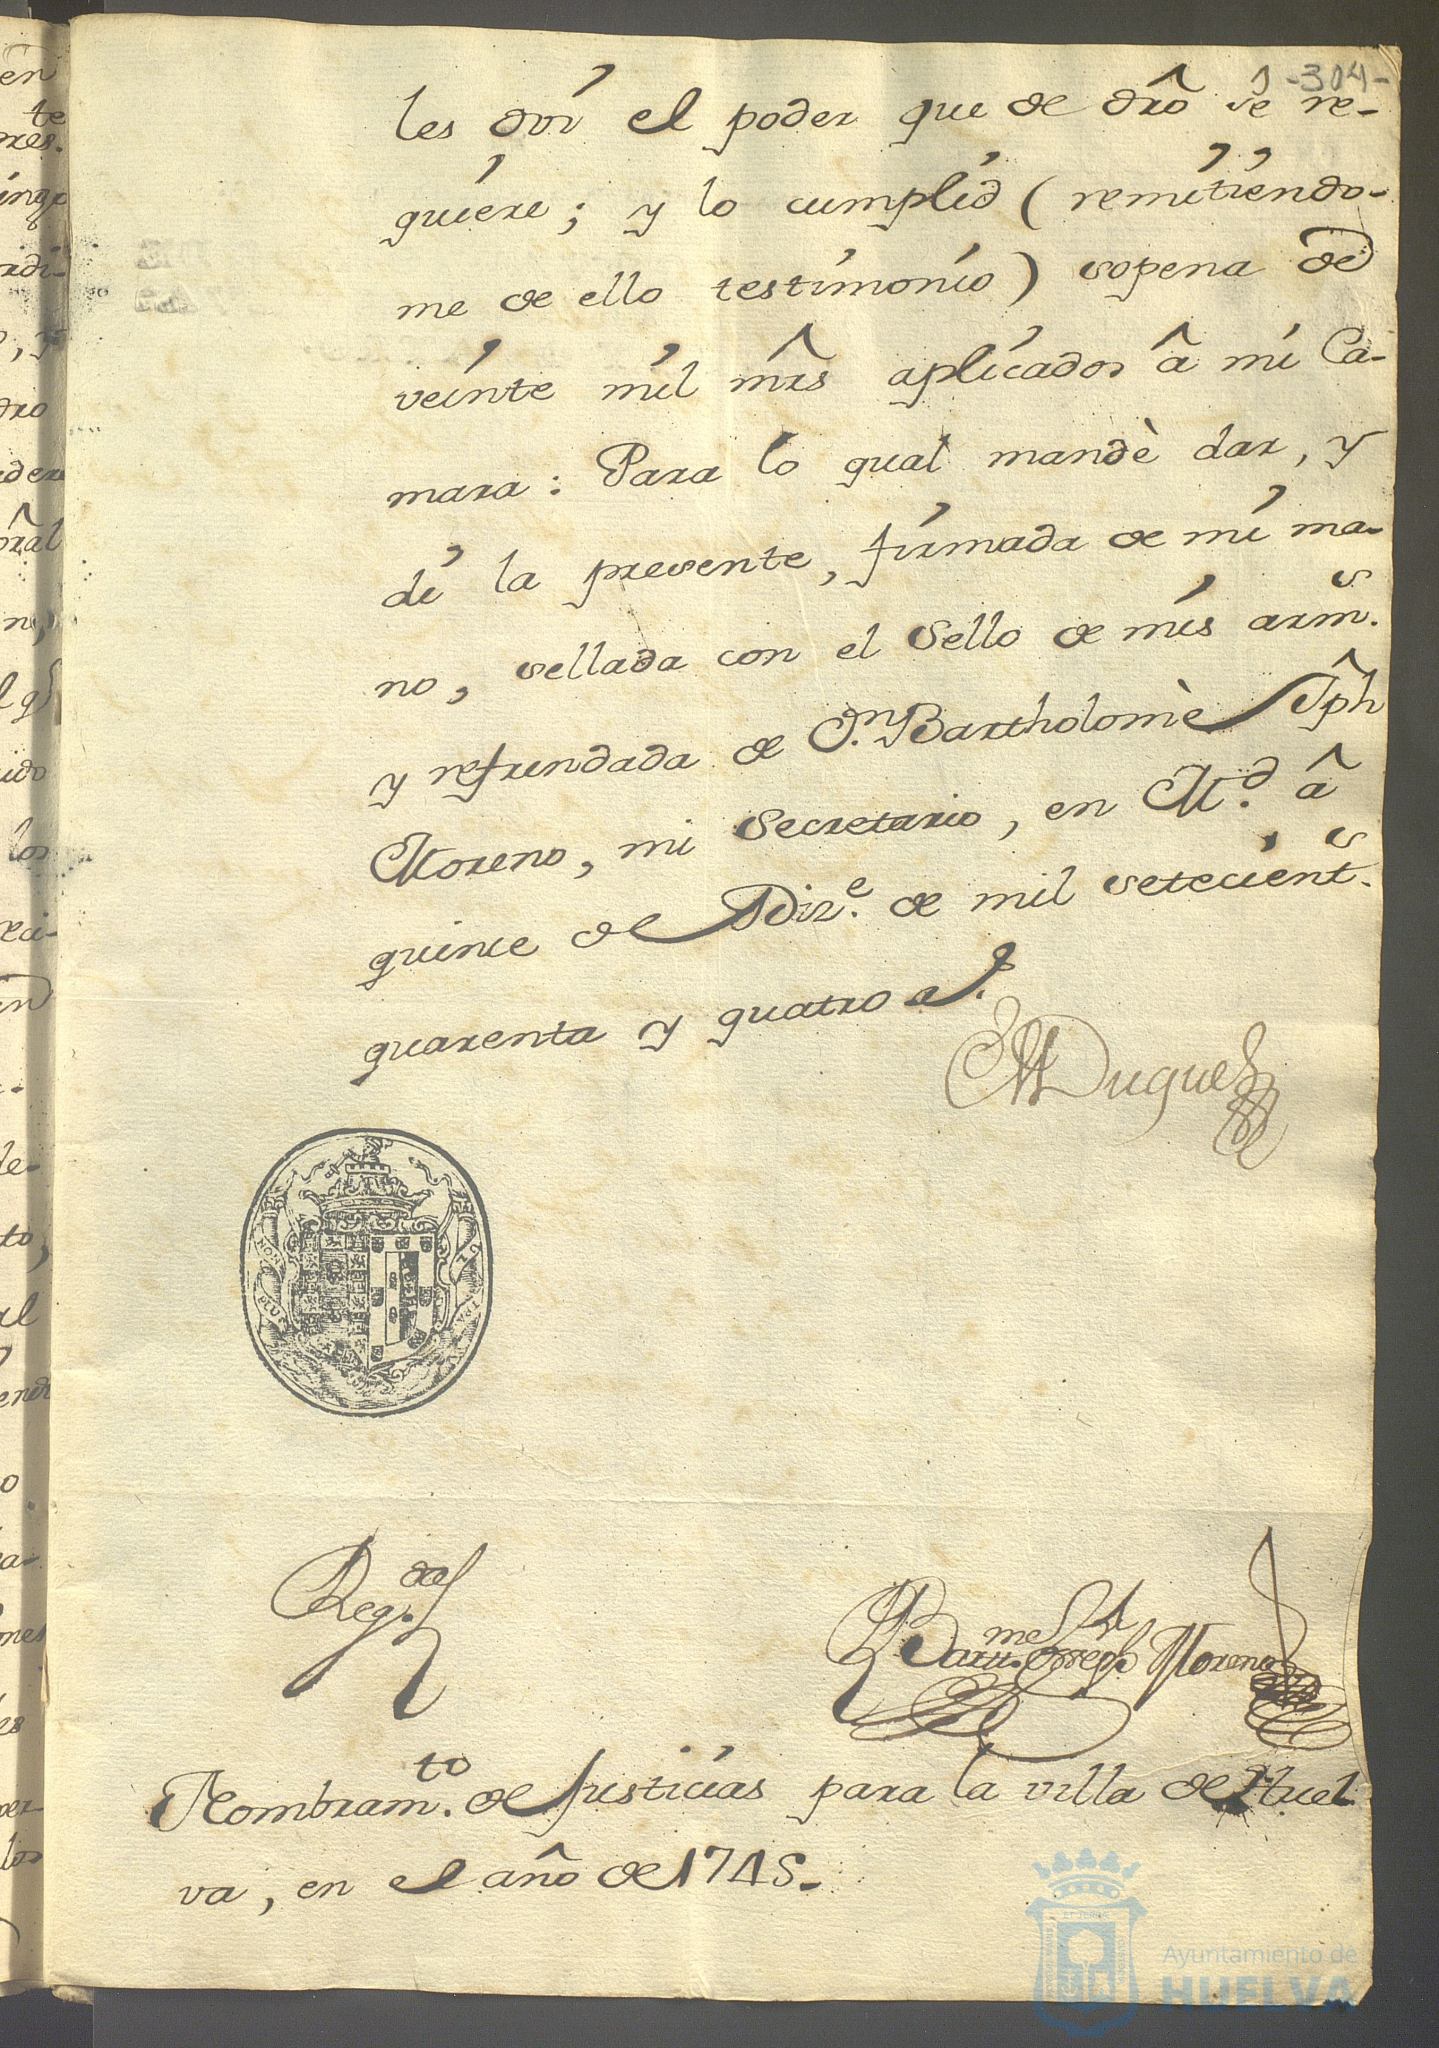 -304-
les doi el poder que de dro se re-
quiere; y lo cumplid (remitiendo-
me de ello testimonio) sopena de
veinte mil mrs aplicados â mi Ca-
mara: Para lo qual mandè dar, y
di la presente, firmada de mi ma-
no, sellada con el Sello de mis arm.s
y refrendada de Dn. Bartholomè Jph
Moreno, mi Secretario, en M.d â
quince de Diz.e de mil setecient.s
quarenta y quatro a.s
El Duque
NON
PLUS
Reg.da
Bartt.me Joseph Moreno
Nombram.to de Justicias para la villa de Huel
va, en el año de 1745.
Ayuntamiento de
HUELVA